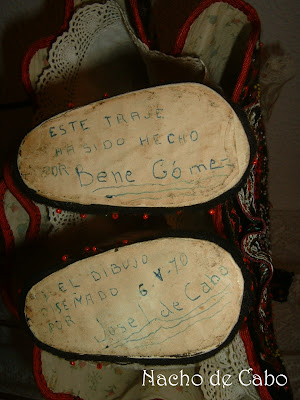 ESTE TRAJE
HA SIDO HECHO
POR Bene Góme
EL DIBUJO
DISEÑADO G.V.70
POR
José I. de Cabo
Nacho de Cabo